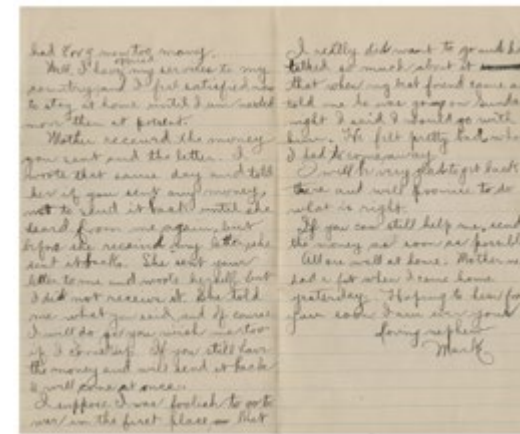 had
offered
Well, I have my services to my
country and I feel satisfied now
to stay at home until I am needed
more than at present.
Mother received the money
you sent and the letter. I
wrote that same day and told
her if you sent any money,
not to send it back until she
heard from me again, but
before she received my letter she
sent it back. She sent your
letter to me and wrote herself but
I did not receive it. She told
me what you said, and of course
I will do as you wish me to
if I come up. If you still have
the money and will send it back
I will come at once.
I suppose I was foolish to go to
war in the first place but
I really did want to go and had
talked so much about it
that when my best friend came and
told me he was going on Sunday
night I said I would go with
him. He felt pretty bad when
I had to come away.
I will be very glad to get back
there and will promise to do
what is right.
If you can still help me, send
the money as soon as possible
All are well at home. Mother
had a fit when I came home
yesterday. Hoping to hear from
you soon I am ever your
loving nephew
Mark